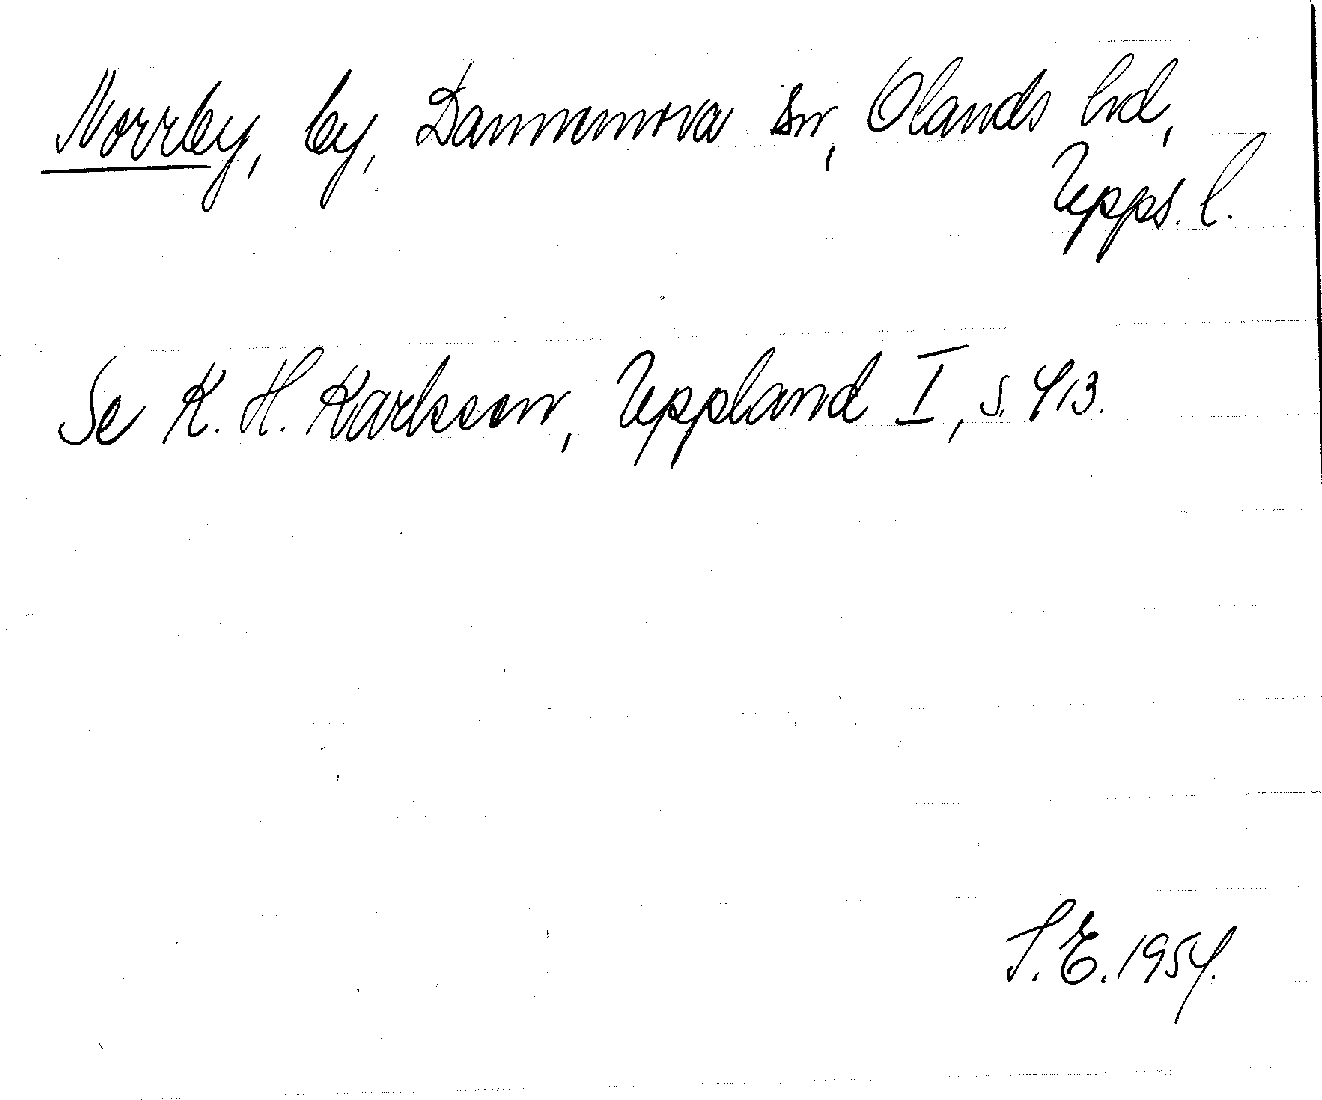 Norrby, by, Dannemora sn, Olands hd,
Upps. l.
Se K. H. Karlsson, Uppland I, s. 413.
S.E. 1954.